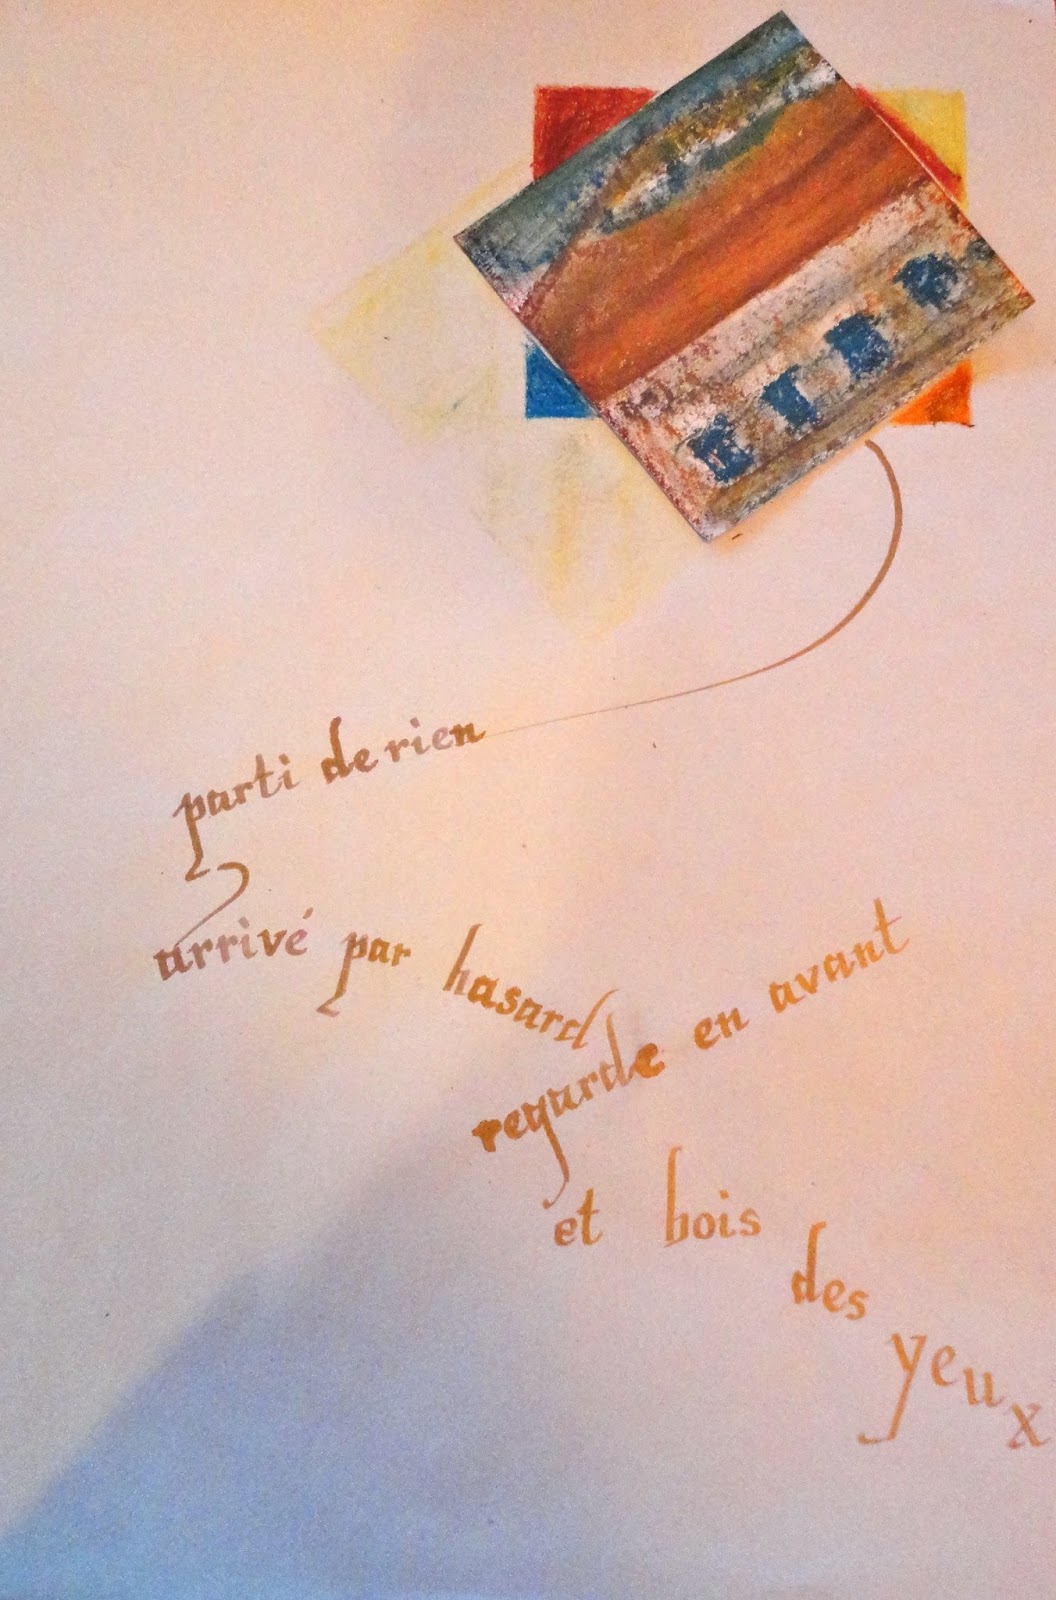 parti de rien
arrivé par hasard
regarde en avant
et bois des yeux